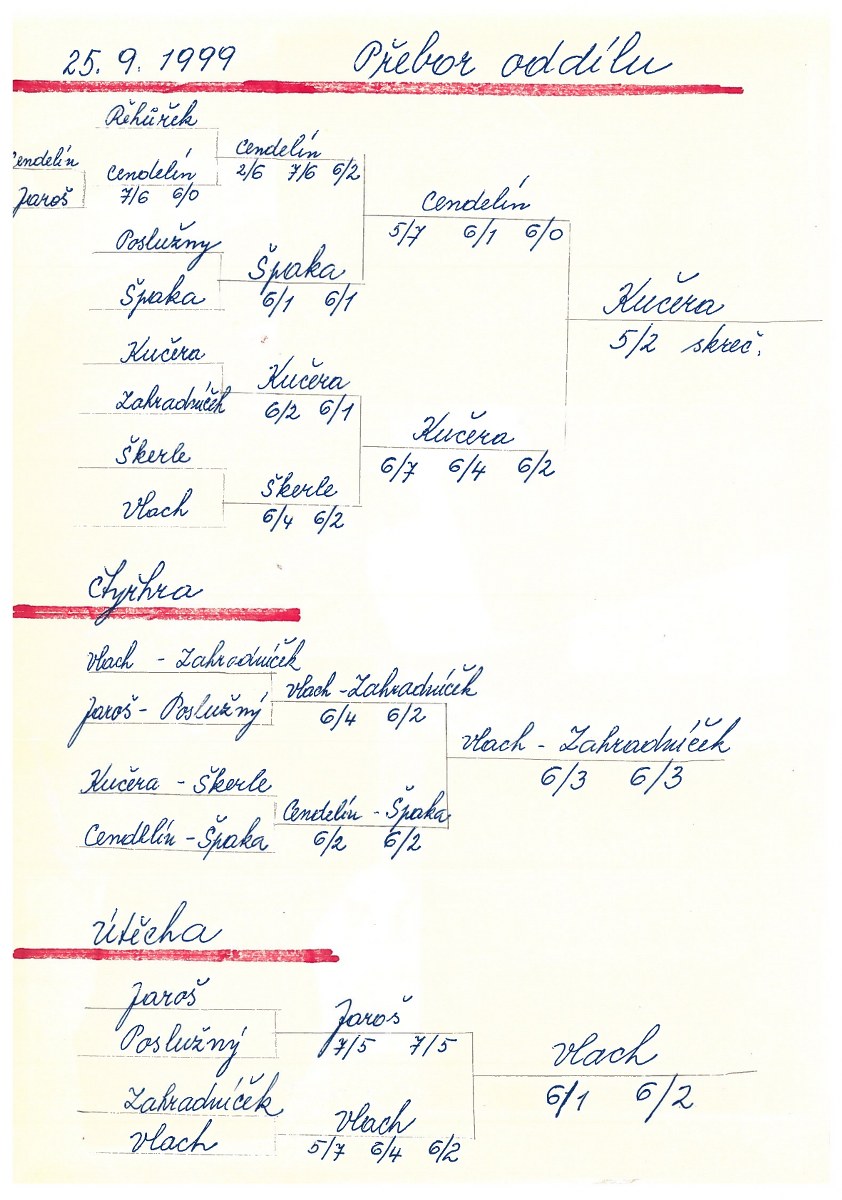 25. 9. 1999 Přebor oddílu
Řehůřek
Cendelín
2/6 7/6 6/2
Cendelín
Jaroš
Cendelín
7/6 6/0
Cendelín
5/7 6/1 6/0
Poslužny
Špaka
Špaka
6/1 6/1
Kučera
5/2 skreč.
Kučera
Zahradníček
Kučera
6/2 6/1
Kučera
6/7 6/4 6/2
Škerle
Vlach
Škerle
6/4 6/2
Čtyřhra
Vlach - Zahradníček
Jaroš - Poslužný
Vlach - Zahradníček
6/4 6/2
Vlach - Zahradníček
6/3 6/3
Kučera - Škerle
Cendelín - Špaka
Cendelín - Špaka
6/2 6/2
Útěcha
Jaroš
Poslužný
Jaroš
7/5 7/5
Vlach
6/1 6/2
Zahradníček
Vlach
Vlach
5/7 6/4 6/2